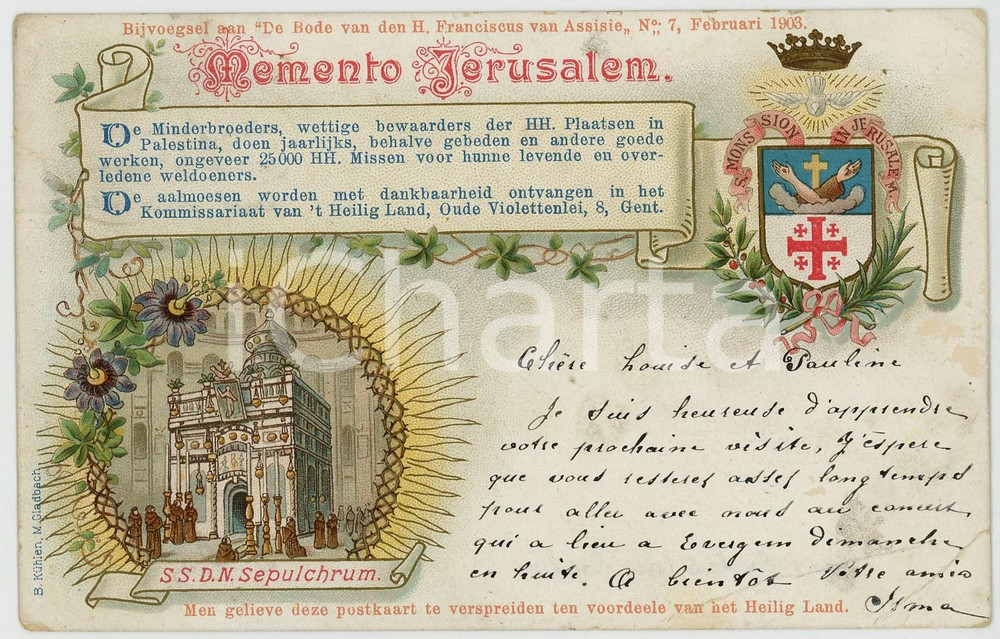 Bijvoegsel aan "De Bode van den H. Franciscus van Assisie„ No: 7, Februari 1903.
Memento Jerusalem.
De Minderbroeders, wettige bewaarders der HH. Plaatsen in
Palestina, doen jaarlijks, behalve gebeden en andere goede
werken, ongeveer 25000 HH. Missen voor hunne levende en over-
ledene weldoeners.
De aalmoesen worden met dankbaarheid ontvangen in het
Kommissariaat van 't Heilig Land, Oude Violettenlei, 8, Gent.
S. MONS SION IN JERUSALEM
iCharta
Chère Louise et Pauline
Je suis heureuse d'apprendre
votre prochaine visite, J'éspere
que vous resterez assez longtemps
pour aller avec nous au concert
qui a lieu a Evergem dimanche
en huite. A bientôt Votre amie
Irma
S.S.D.N. Sepulchrum.
B. Kühlen, M. Gladbach.
Men gelieve deze postkaart te verspreiden ten voordeele van het Heilig Land.